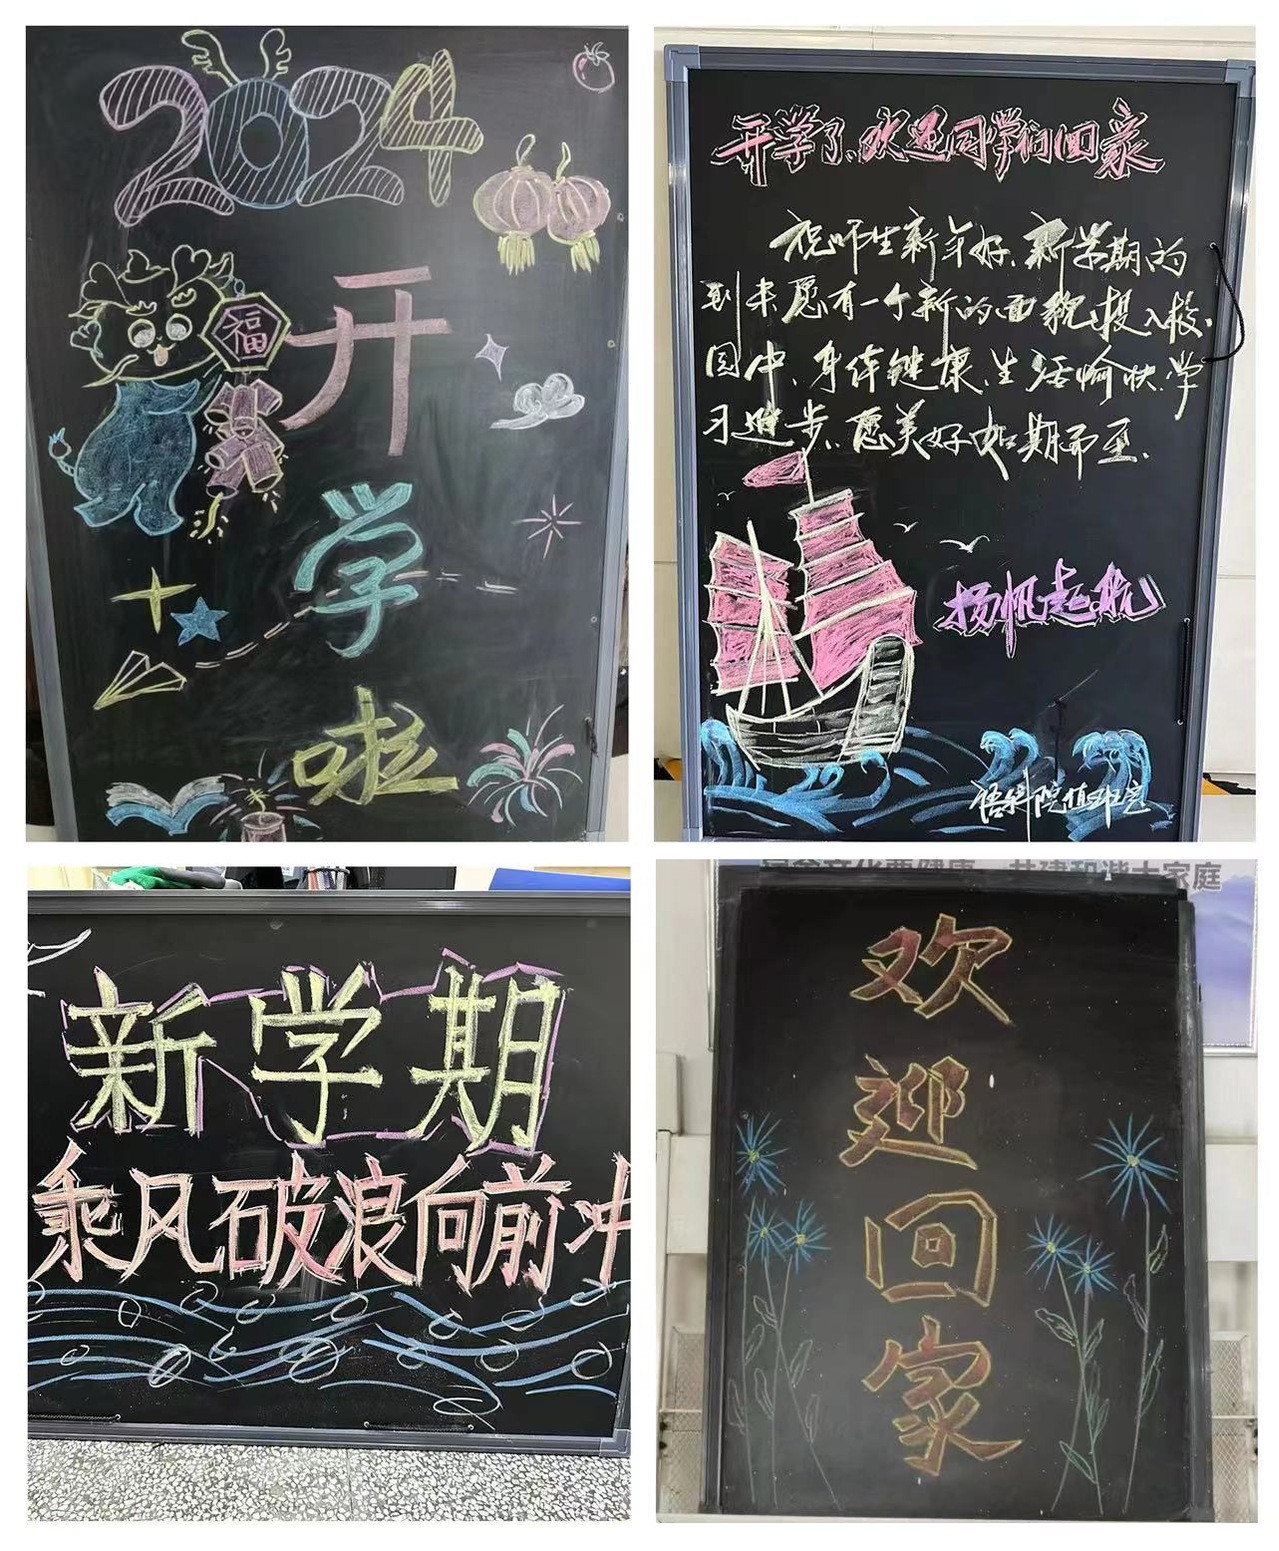 2024
福
开
学
啦
开学了,欢迎同学们回家
祝师生新年好,新学期的
到来愿有一个新的面貌投入校
园中,身体健康,生活愉快,学
习进步,愿美好如期而至.
扬帆起航
信科院值班室
新学期
乘风破浪向前冲
宿舍文化要健康 共建和谐大家庭
欢
迎
回
家